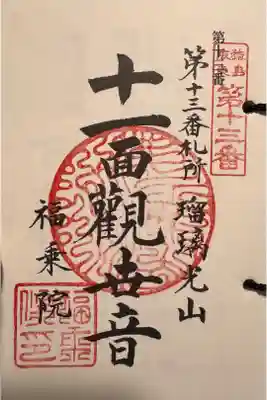 第十三番
第十三番
第十三番札所
瑠璃光山
十一面觀世音
福乗院